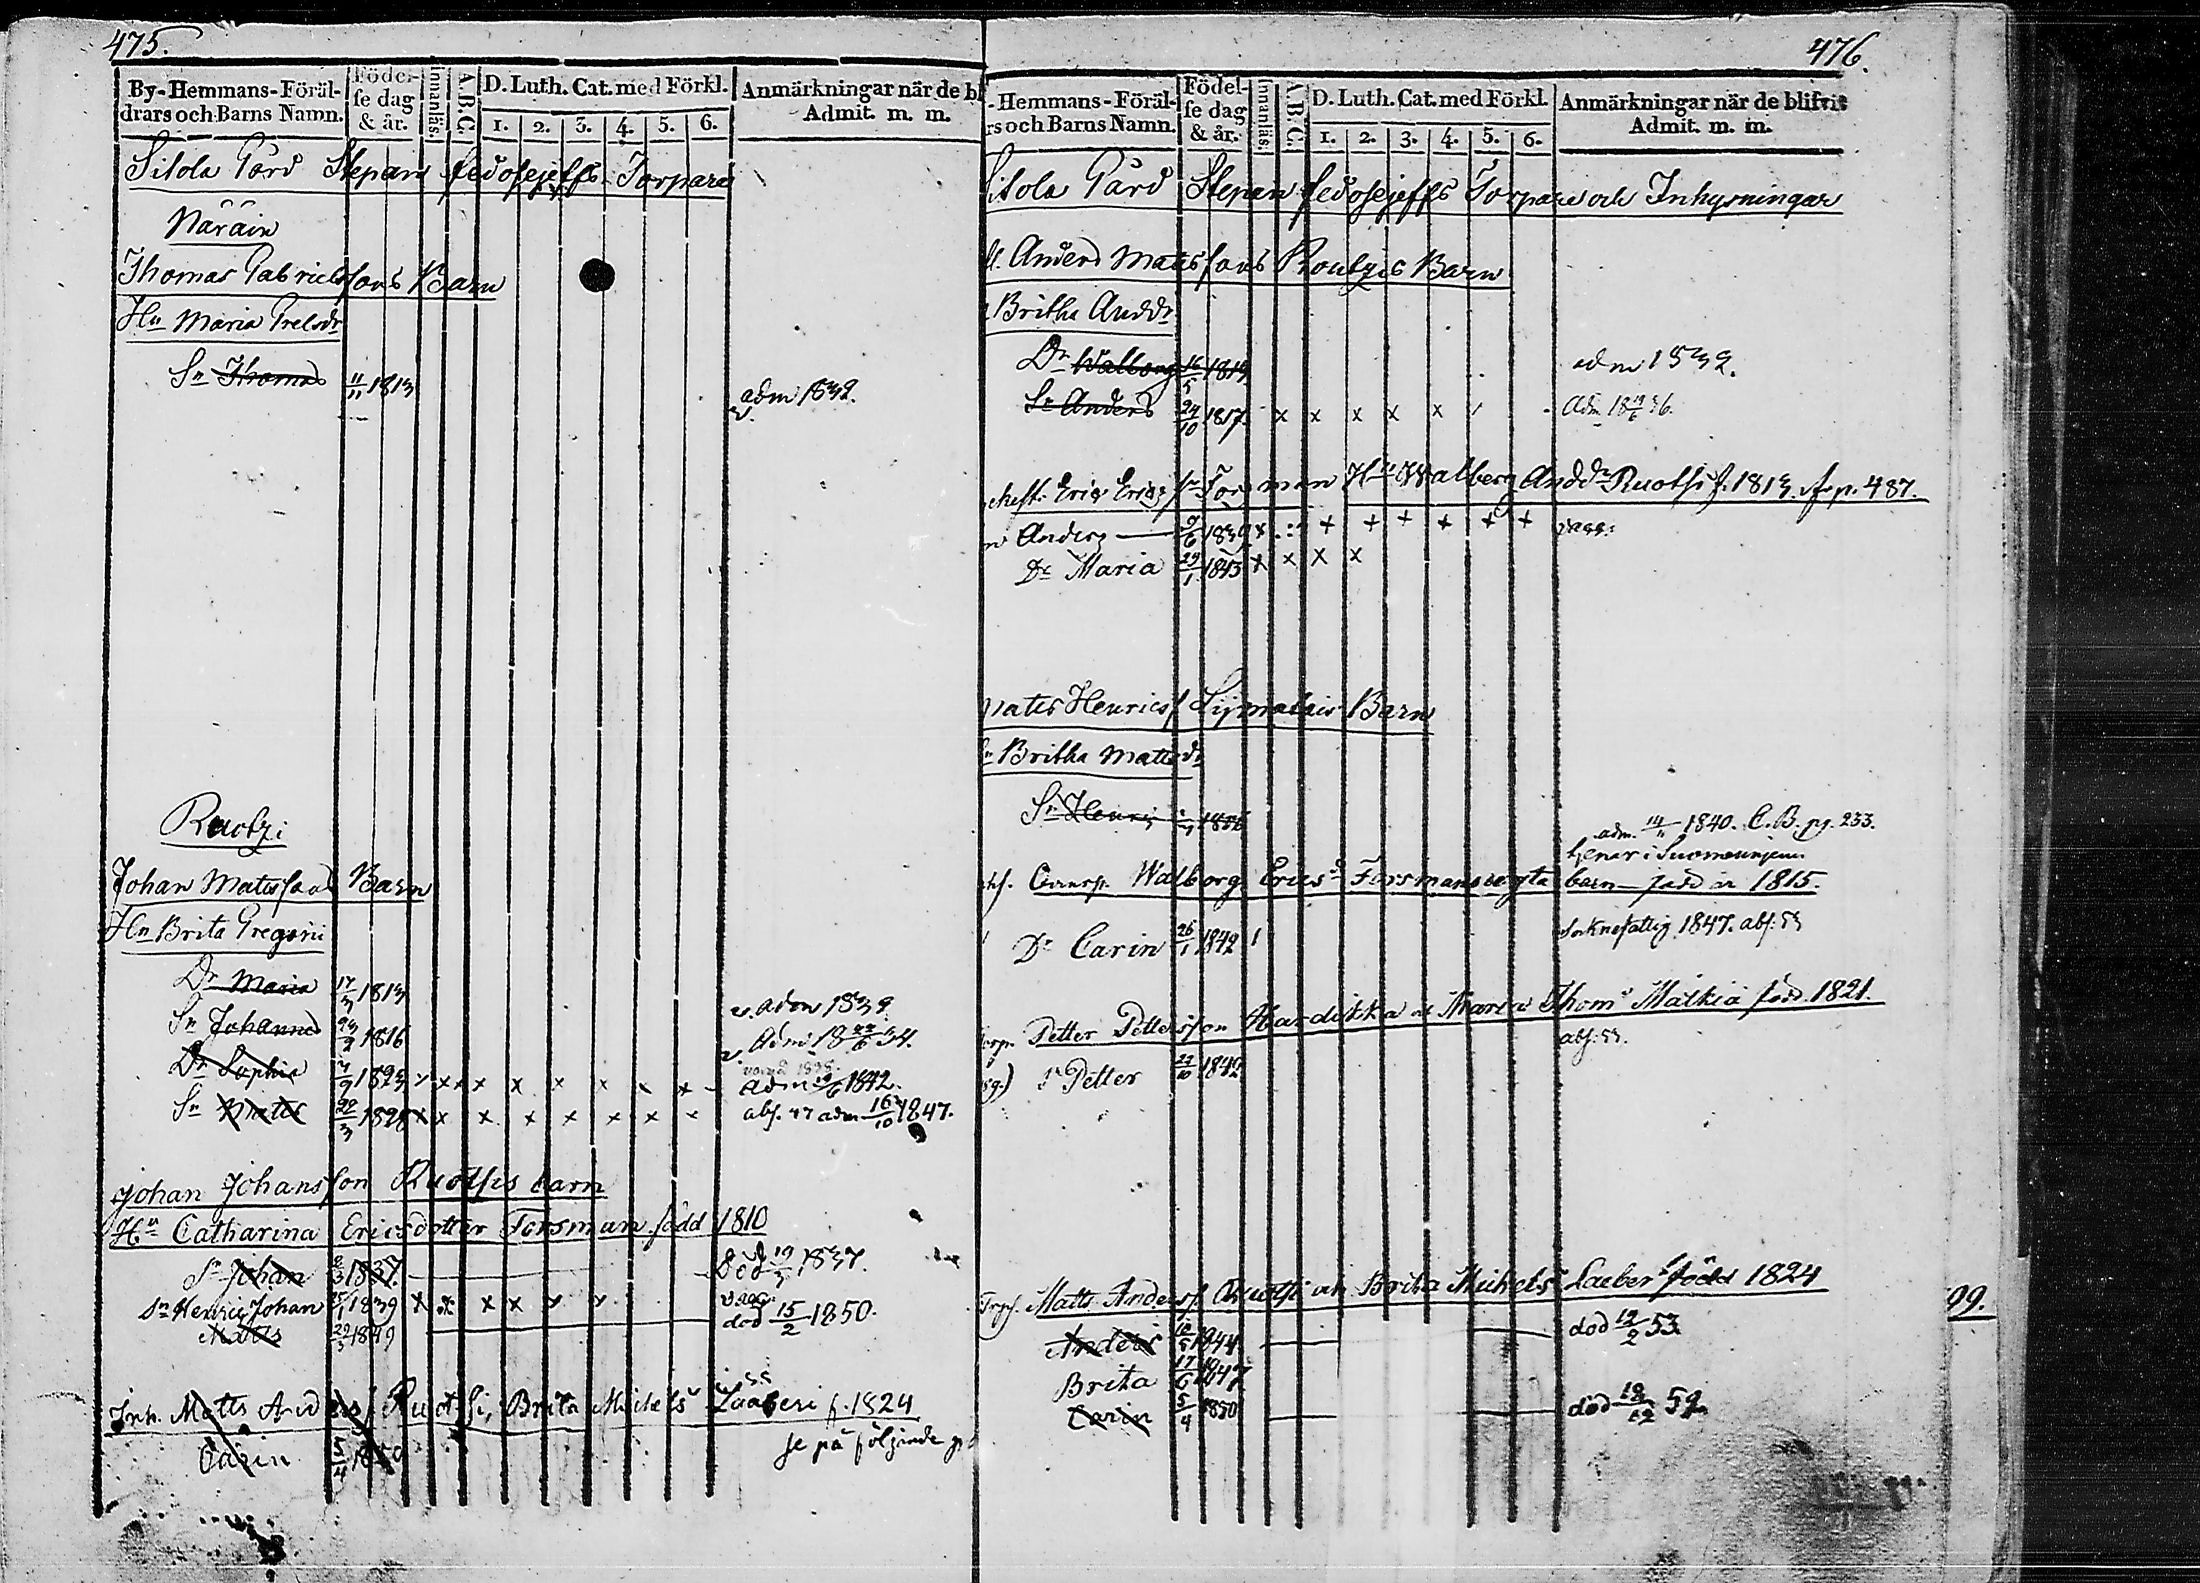 475.
By-Hemmans-Föräl-
drars och Barns Namn.
Födel-
se dag
& år.
Innanläs.
A.B.C.
D. Luth. Cat. med Förkl.
1. 2. 3. 4. 5. 6.
Anmärkningar när de bl
Admit. m. m.
Sitola Gård Stepans fedosejeffs Torpare
Näräin
Thomas Gabrielssons Barn
Hu Maria Grelsdr
Sn Thomas 11/11 1813 adm 1832.
Ruotzi
Johan Matssons Barn
Hu Brita Gregori
Dr Maria 17/3 1813 adm 1832
Sn Johannes 1816 Adm 18 22/6 34.
Dr Sophia 1823 x x x x x x x adm 1842.
Sn Matts 22/3 1828 x x x x x x x abs. 47 adm 16/10 1847.
Johan Johansson Ruotsis barn
Hu Catharina Ericsdotter Forsman född 1810
Sn Johan 1837. Död 19/3 1837.
Sn Henric Johan 25/1 1839 x x x x vacc.
Matts 22/3 1849 död 15/2 1850.
Inh. Matts Andersf Ruotsi, Brita Michelsr Laaberi f. 1824
se på följande
Carin 5/4 1850
476.
-Hemmans-Föräl-
rs och Barns Namn.
Födel-
se dag
& år.
Innanläs.
A.B.C.
D. Luth. Cat. med Förkl.
1. 2. 3. 4. 5. 6.
Anmärkningar när de blifvit
Admit. m. m.
Sitola Gård Stepan fedosejeffs Torpare och Inhysningar
Anders Matssons Routzis Barn
Britha Anddr
Dr Walborg 16/5 1819 adm 1832.
Sn Anders 24/10 1817 x x x x x Adm 18 19/6 36.
Eric Ericss Forsman Hu Walborg Anddr Ruotsi f. 1813. fr p. 487.
Anders 9/6 1839 x x x x x x x vacc:
Dr Maria 29/1 1843 x x x x
Mats Henricsf Sijmalais Barn
Britha Mattsdr
Sn Henric 1826 adm. 14/11 1840. C.B. pg. 233.
tjenar i Suomenniemi
Walborg Ericsd Forsmans oägta barn född år 1815.
Dr Carin 26/1 1842 Socknefattig 1847. abs: 53
Petter Pettersson Hardikka och Maria Thomsr Mälkiä född. 1821.
abs: 53.
Sn Petter 27/10 1842
Matts Andersf Ruotsi och Brita Michelsr Laaber född 1824
Anders 10/5 1844 död 12/2 53
Brita 17/6 1847
Carin 5/4 1850 död 18/12 52
99.